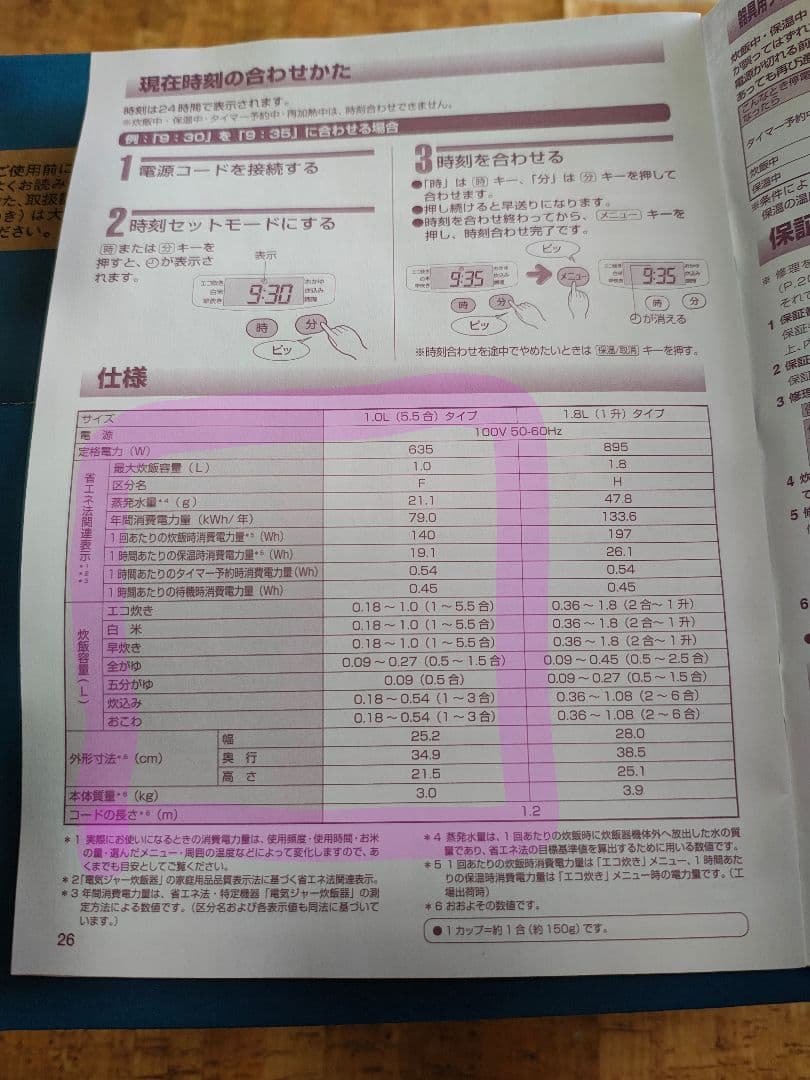 現在時刻の合わせかた
時刻は24時間で表示されます。
※炊飯中・保温中・タイマー予約中・再加熱中は、時刻合わせできません。
例:「9:30」を「9:35」に合わせる場合
1 電源コードを接続する
2 時刻セットモードにする
時または分キーを
押すと、が表示さ
れます。
表示
エコ炊き
白米
早炊き
9:30
おかゆ
炊込み
時
分
ピッ
3 時刻を合わせる
●「時」は時キー、「分」は分キーを押して
合わせます。
●押し続けると早送りになります。
●時刻を合わせ終わってから、メニューキーを
押し、時刻合わせ完了です。
ピッ
エコ炊き
白米
早炊き
9:35
おかゆ
炊込み
時
分
ピッ
メニュー
エコ炊き
白米
早炊き
9:35
おかゆ
炊込み
時
分
が消える
※時刻合わせを途中でやめたいときは 保温/取消 キーを押す。
仕様
サイズ 1.0L(5.5合)タイプ 1.8L(1升)タイプ
電 源 100V 50-60Hz
定格電力(W) 635 895
省エネ法関連表示*1*2*3
最大炊飯容量(L) 1.0 1.8
区分名 F H
蒸発水量*4(g) 21.1 47.8
年間消費電力量(kWh/年) 79.0 133.6
1回あたりの炊飯時消費電力量*5(Wh) 140 197
1時間あたりの保温時消費電力量*5(Wh) 19.1 26.1
1時間あたりのタイマー予約時消費電力量(Wh) 0.54 0.54
1時間あたりの待機時消費電力量(Wh) 0.45 0.45
炊飯容量(L)
エコ炊き 0.18～1.0(1～5.5合) 0.36～1.8(2合～1升)
白 米 0.18～1.0(1～5.5合) 0.36～1.8(2合～1升)
早炊き 0.18～1.0(1～5.5合) 0.36～1.8(2合～1升)
全がゆ 0.09～0.27(0.5～1.5合) 0.09～0.45(0.5～2.5合)
五分がゆ 0.09(0.5合) 0.09～0.27(0.5～1.5合)
炊込み 0.18～0.54(1～3合) 0.36～1.08(2～6合)
おこわ 0.18～0.54(1～3合) 0.36～1.08(2～6合)
外形寸法*6(cm)
幅 25.2 28.0
奥 行 34.9 38.5
高 さ 21.5 25.1
本体質量*6(kg) 3.0 3.9
コードの長さ*6(m) 1.2
*1 実際にお使いになるときの消費電力量は、使用頻度・使用時間・お米
の量・選んだメニュー・周囲の温度などによって変化しますので、あ
くまでも目安としてご覧ください。
*2「電気ジャー炊飯器」の家庭用品品質表示法に基づく省エネ法関連表示。
*3 年間消費電力量は、省エネ法・特定機器「電気ジャー炊飯器」の測
定方法による数値です。(区分名および各表示値も同法に基づいて
います。)
*4 蒸発水量は、1回あたりの炊飯時に炊飯器機体外へ放出した水の質
量であり、省エネ法の目標基準値を算出するために用いる数値です。
*5 1回あたりの炊飯時消費電力量は「エコ炊き」メニュー、1時間あた
りの保温時消費電力量は「エコ炊き」メニュー時の電力量です。(工
場出荷時)
*6 おおよその数値です。
●1カップ=約1合(約150g)です。
26
ご使用前に
よくお読み
た、取扱
き)は大
ださい。
炊飯中・保温中
が誤ってはずれ
電源が切れる前
あっても再び通
こんなとき停
なったら
タイマー予約中
炊飯中
保温中
※条件によ
保温の温
保証
※ 修理を
(P.20
それで
1 保証書
保証
上、内
2 保証
保証
3 修理
4 炊
て
5 修
6